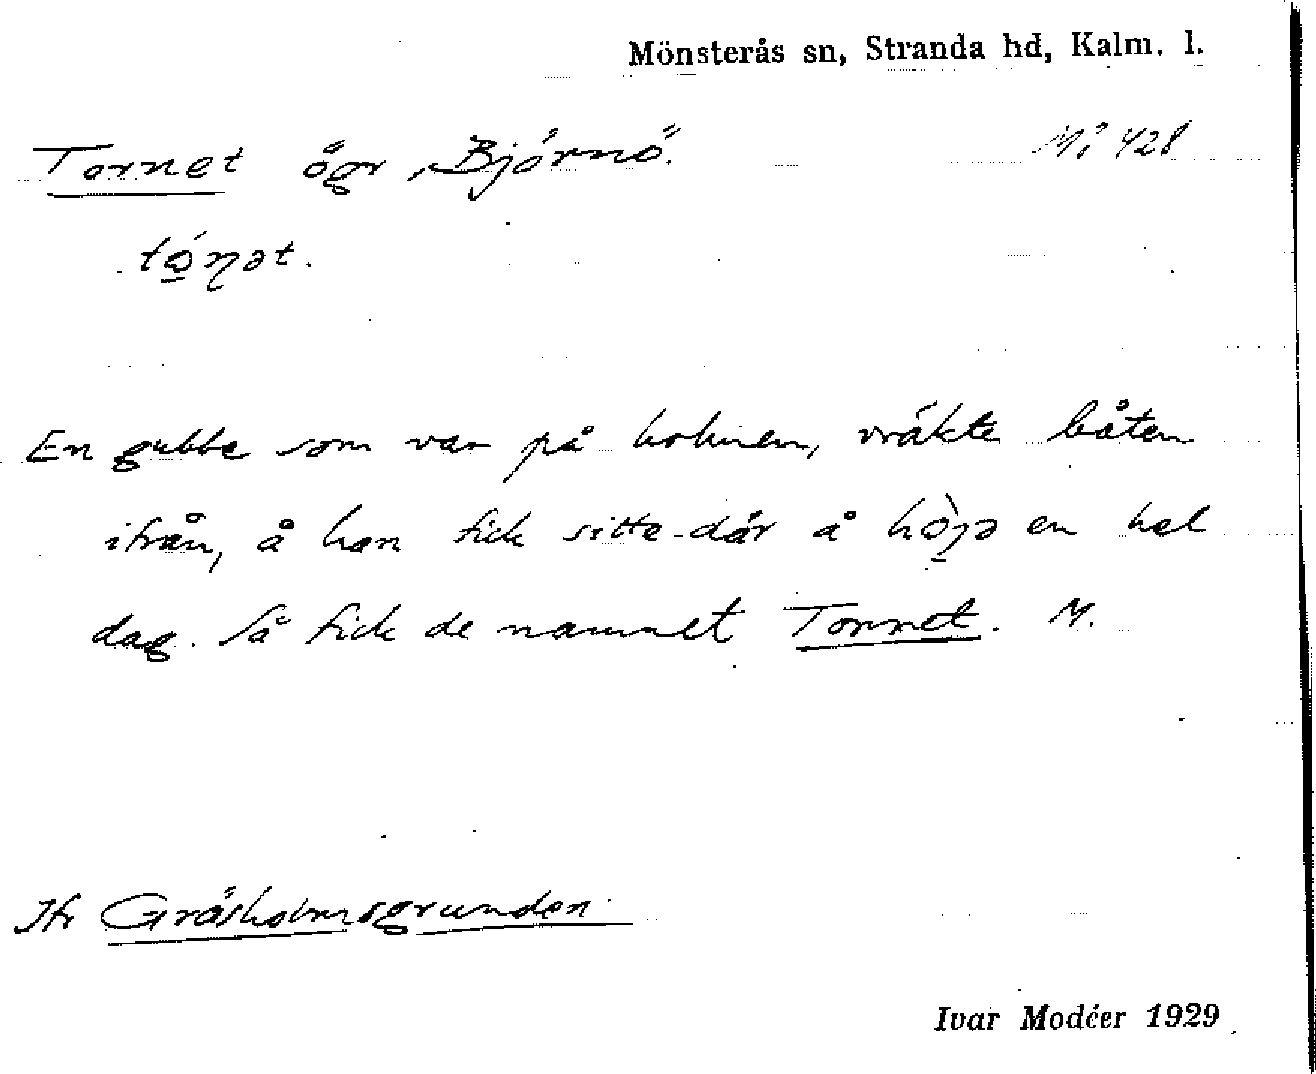 Mönsterås sn, Stranda hd, Kalm. l.
Tornet ögr, Björnö. Mö 428
tóṇət.
En gubbe som var på holmen, vräkte båten
ifrån, å han fick sitte där å en hel
dag. Så fick de namnet Tornet. M.
Jfr Gräsholmsgrunden
Ivar Modéer 1929